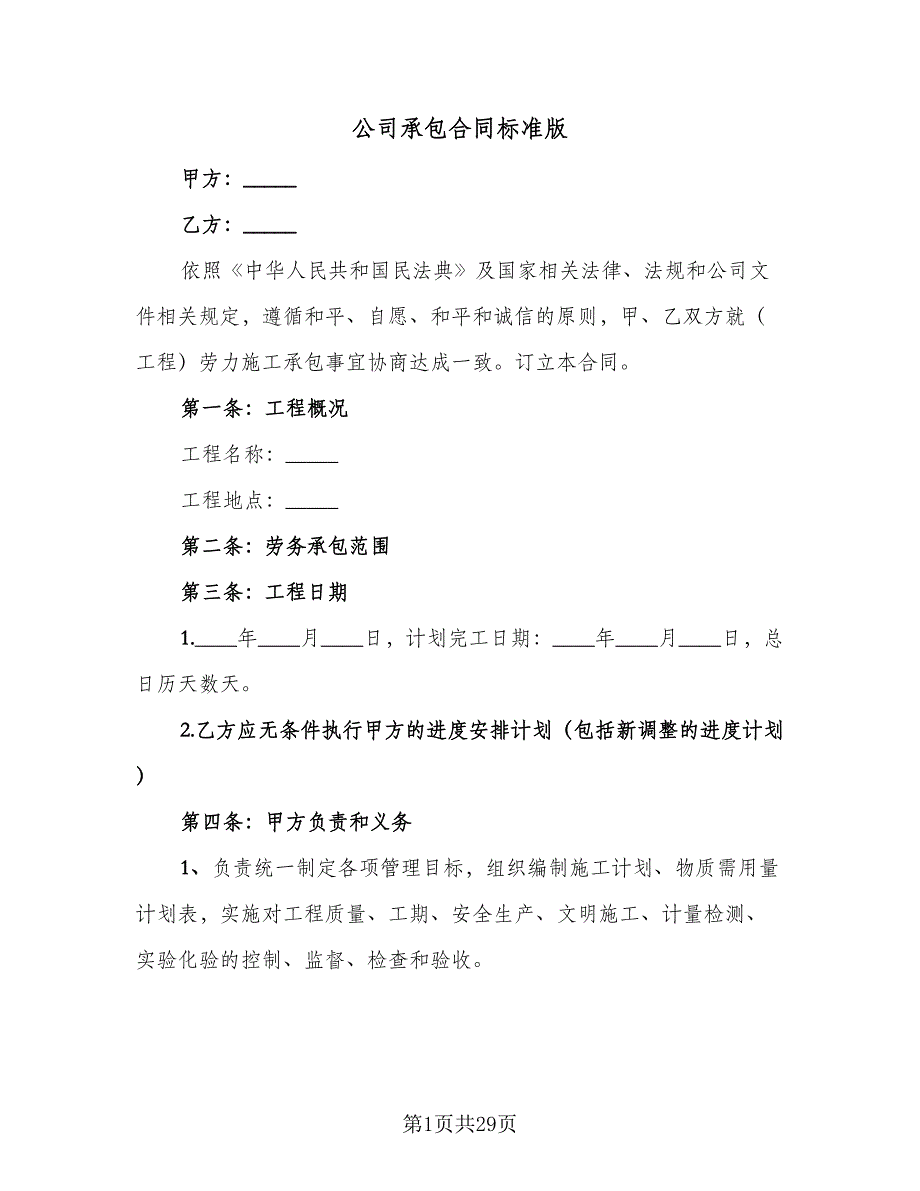 公司承包合同标准版
甲方：_____
乙方：_____
依照《中华人民共和国民法典》及国家相关法律、法规和公司文
件相关规定，遵循和平、自愿、和平和诚信的原则，甲、乙双方就（
工程）劳力施工承包事宜协商达成一致。订立本合同。
第一条：工程概况
工程名称：_____
工程地点：_____
第二条：劳务承包范围
第三条：工程日期
1.____年____月____日，计划完工日期：____年____月____日，总
日历天数天。
2.乙方应无条件执行甲方的进度安排计划（包括新调整的进度计划
）
第四条：甲方负责和义务
1、负责统一制定各项管理目标，组织编制施工计划、物质需用量
计划表，实施对工程质量、工期、安全生产、文明施工、计量检测、
实验化验的控制、监督、检查和验收。
第1页共29页